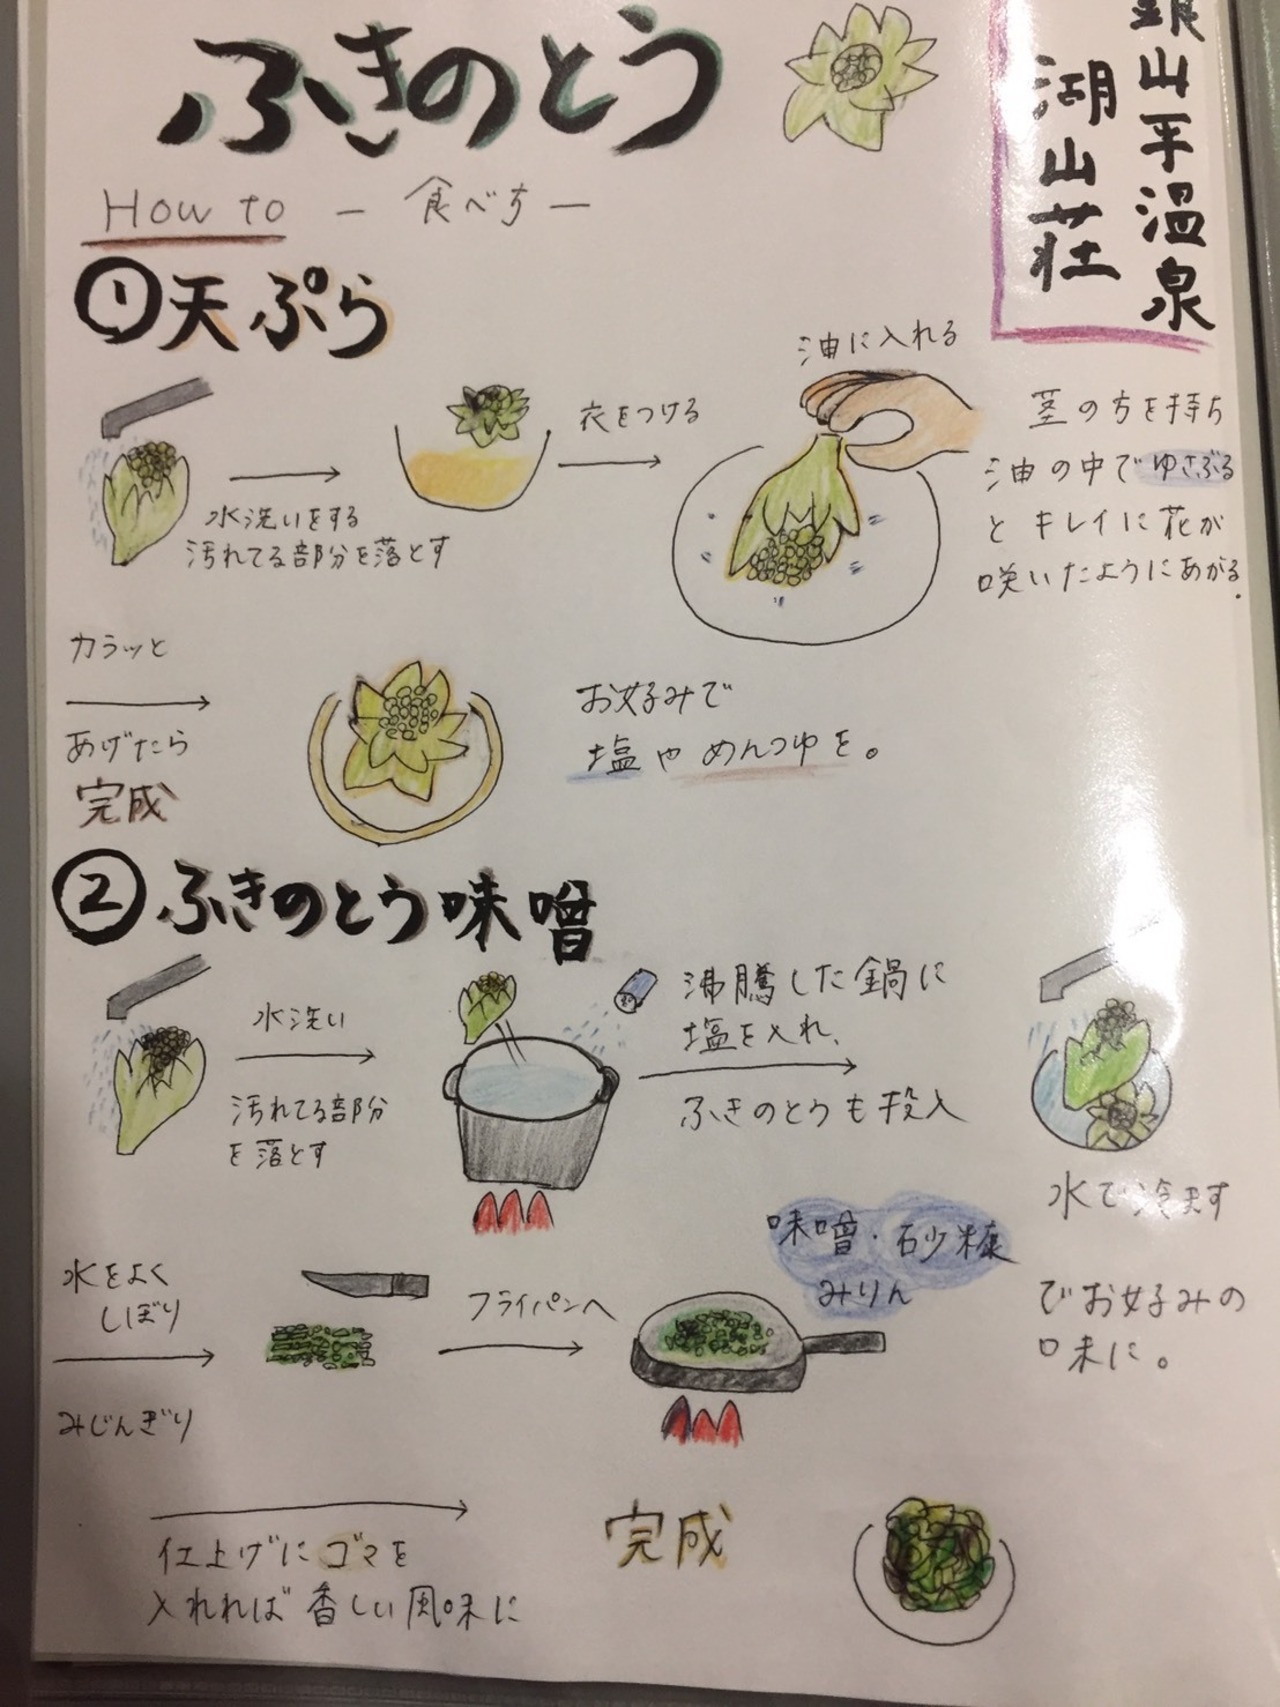 ふきのとう
銀山平温泉
湖山荘
How to － 食べ方－
①天ぷら
水洗いをする
汚れてる部分を落とす
衣をつける
油に入れる
茎の方を持ち
油の中でゆさぶる
とキレイに花が
咲いたようにあがる.
カラッと
あげたら
完成
お好みで
塩やめんつゆを。
②ふきのとう味噌
水洗い
汚れてる部分
を落とす
沸騰した鍋に
塩を入れ、
ふきのとうも投入
水で冷ます
水をよく
しぼり
みじんぎり
フライパンへ
味噌・砂糖
みりん
でお好みの
味に。
仕上げにゴマを
入れれば香しい風味に
完成